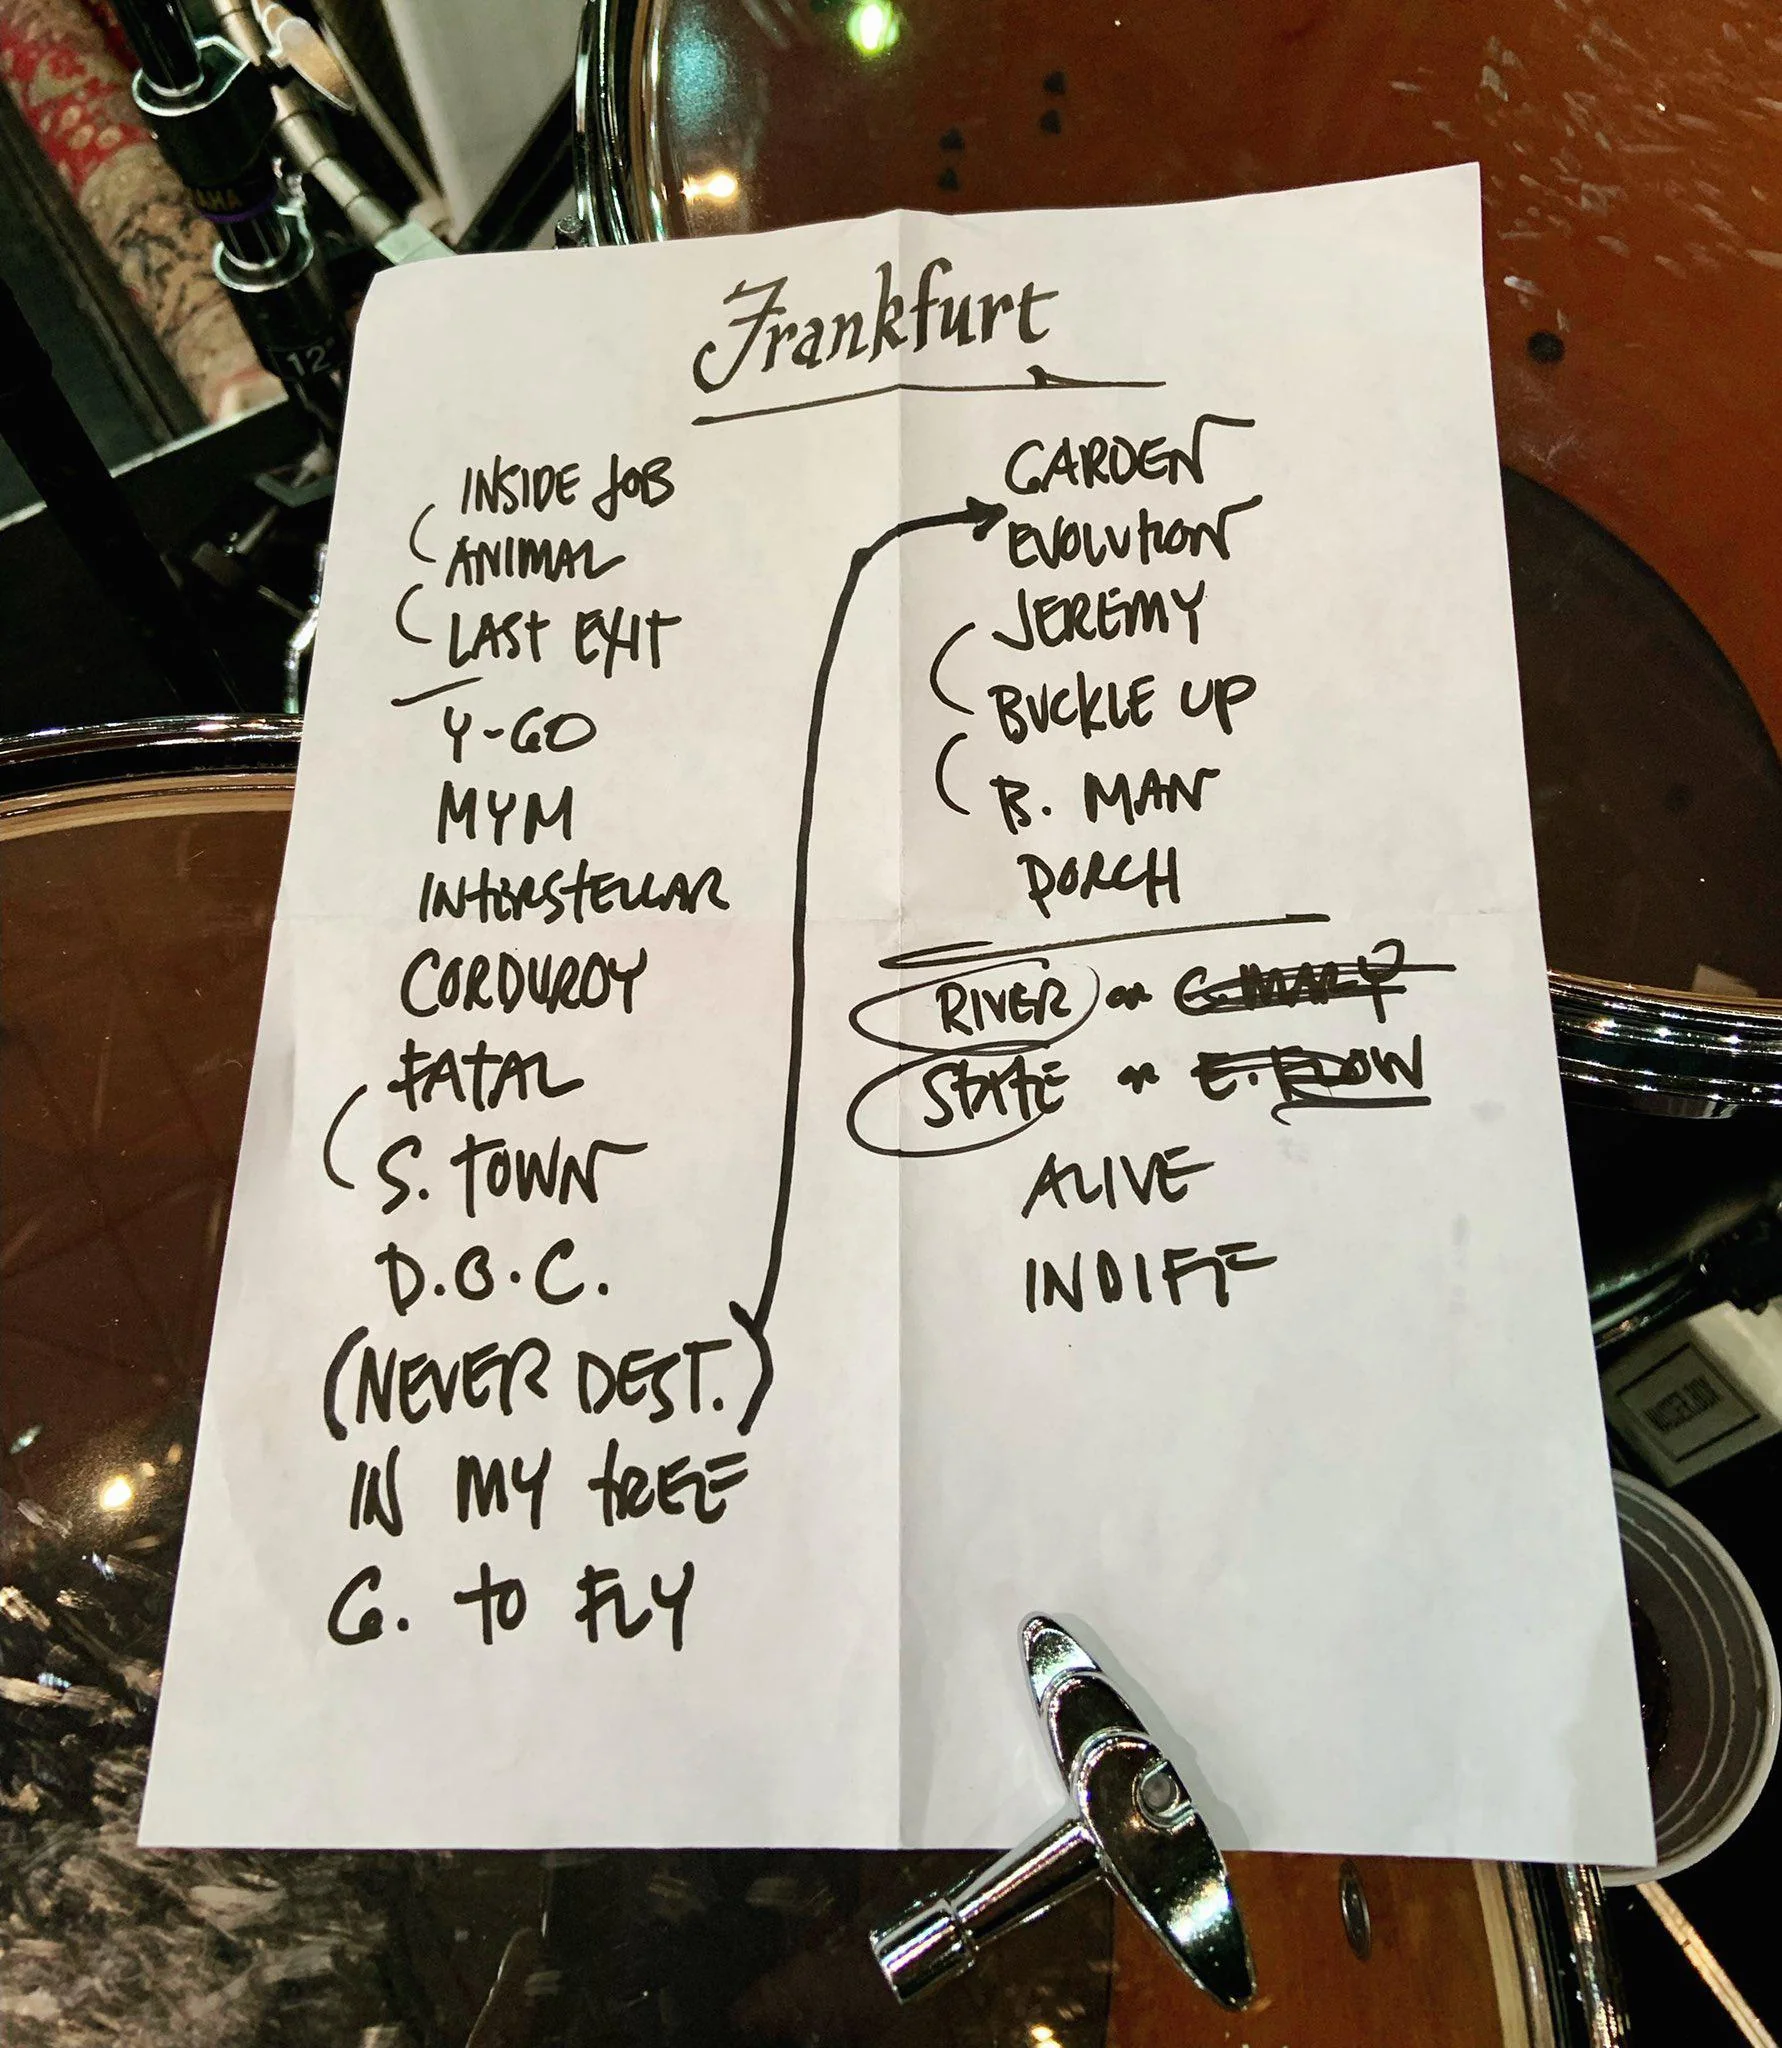 Frankfurt
INSIDE JOB
ANIMAL
LAST EXIT
Y-GO
MYM
INTERSTELLAR
CORDUROY
FATAL
S. TOWN
D.B.C.
(NEVER DEST.)
IN MY TREE
G. TO FLY
GARDEN
EVOLUTION
JEREMY
BUCKLE UP
B. MAN
PORCH
RIVER or G. MARY
STATE or E. FLOW
ALIVE
INDIFF
12"